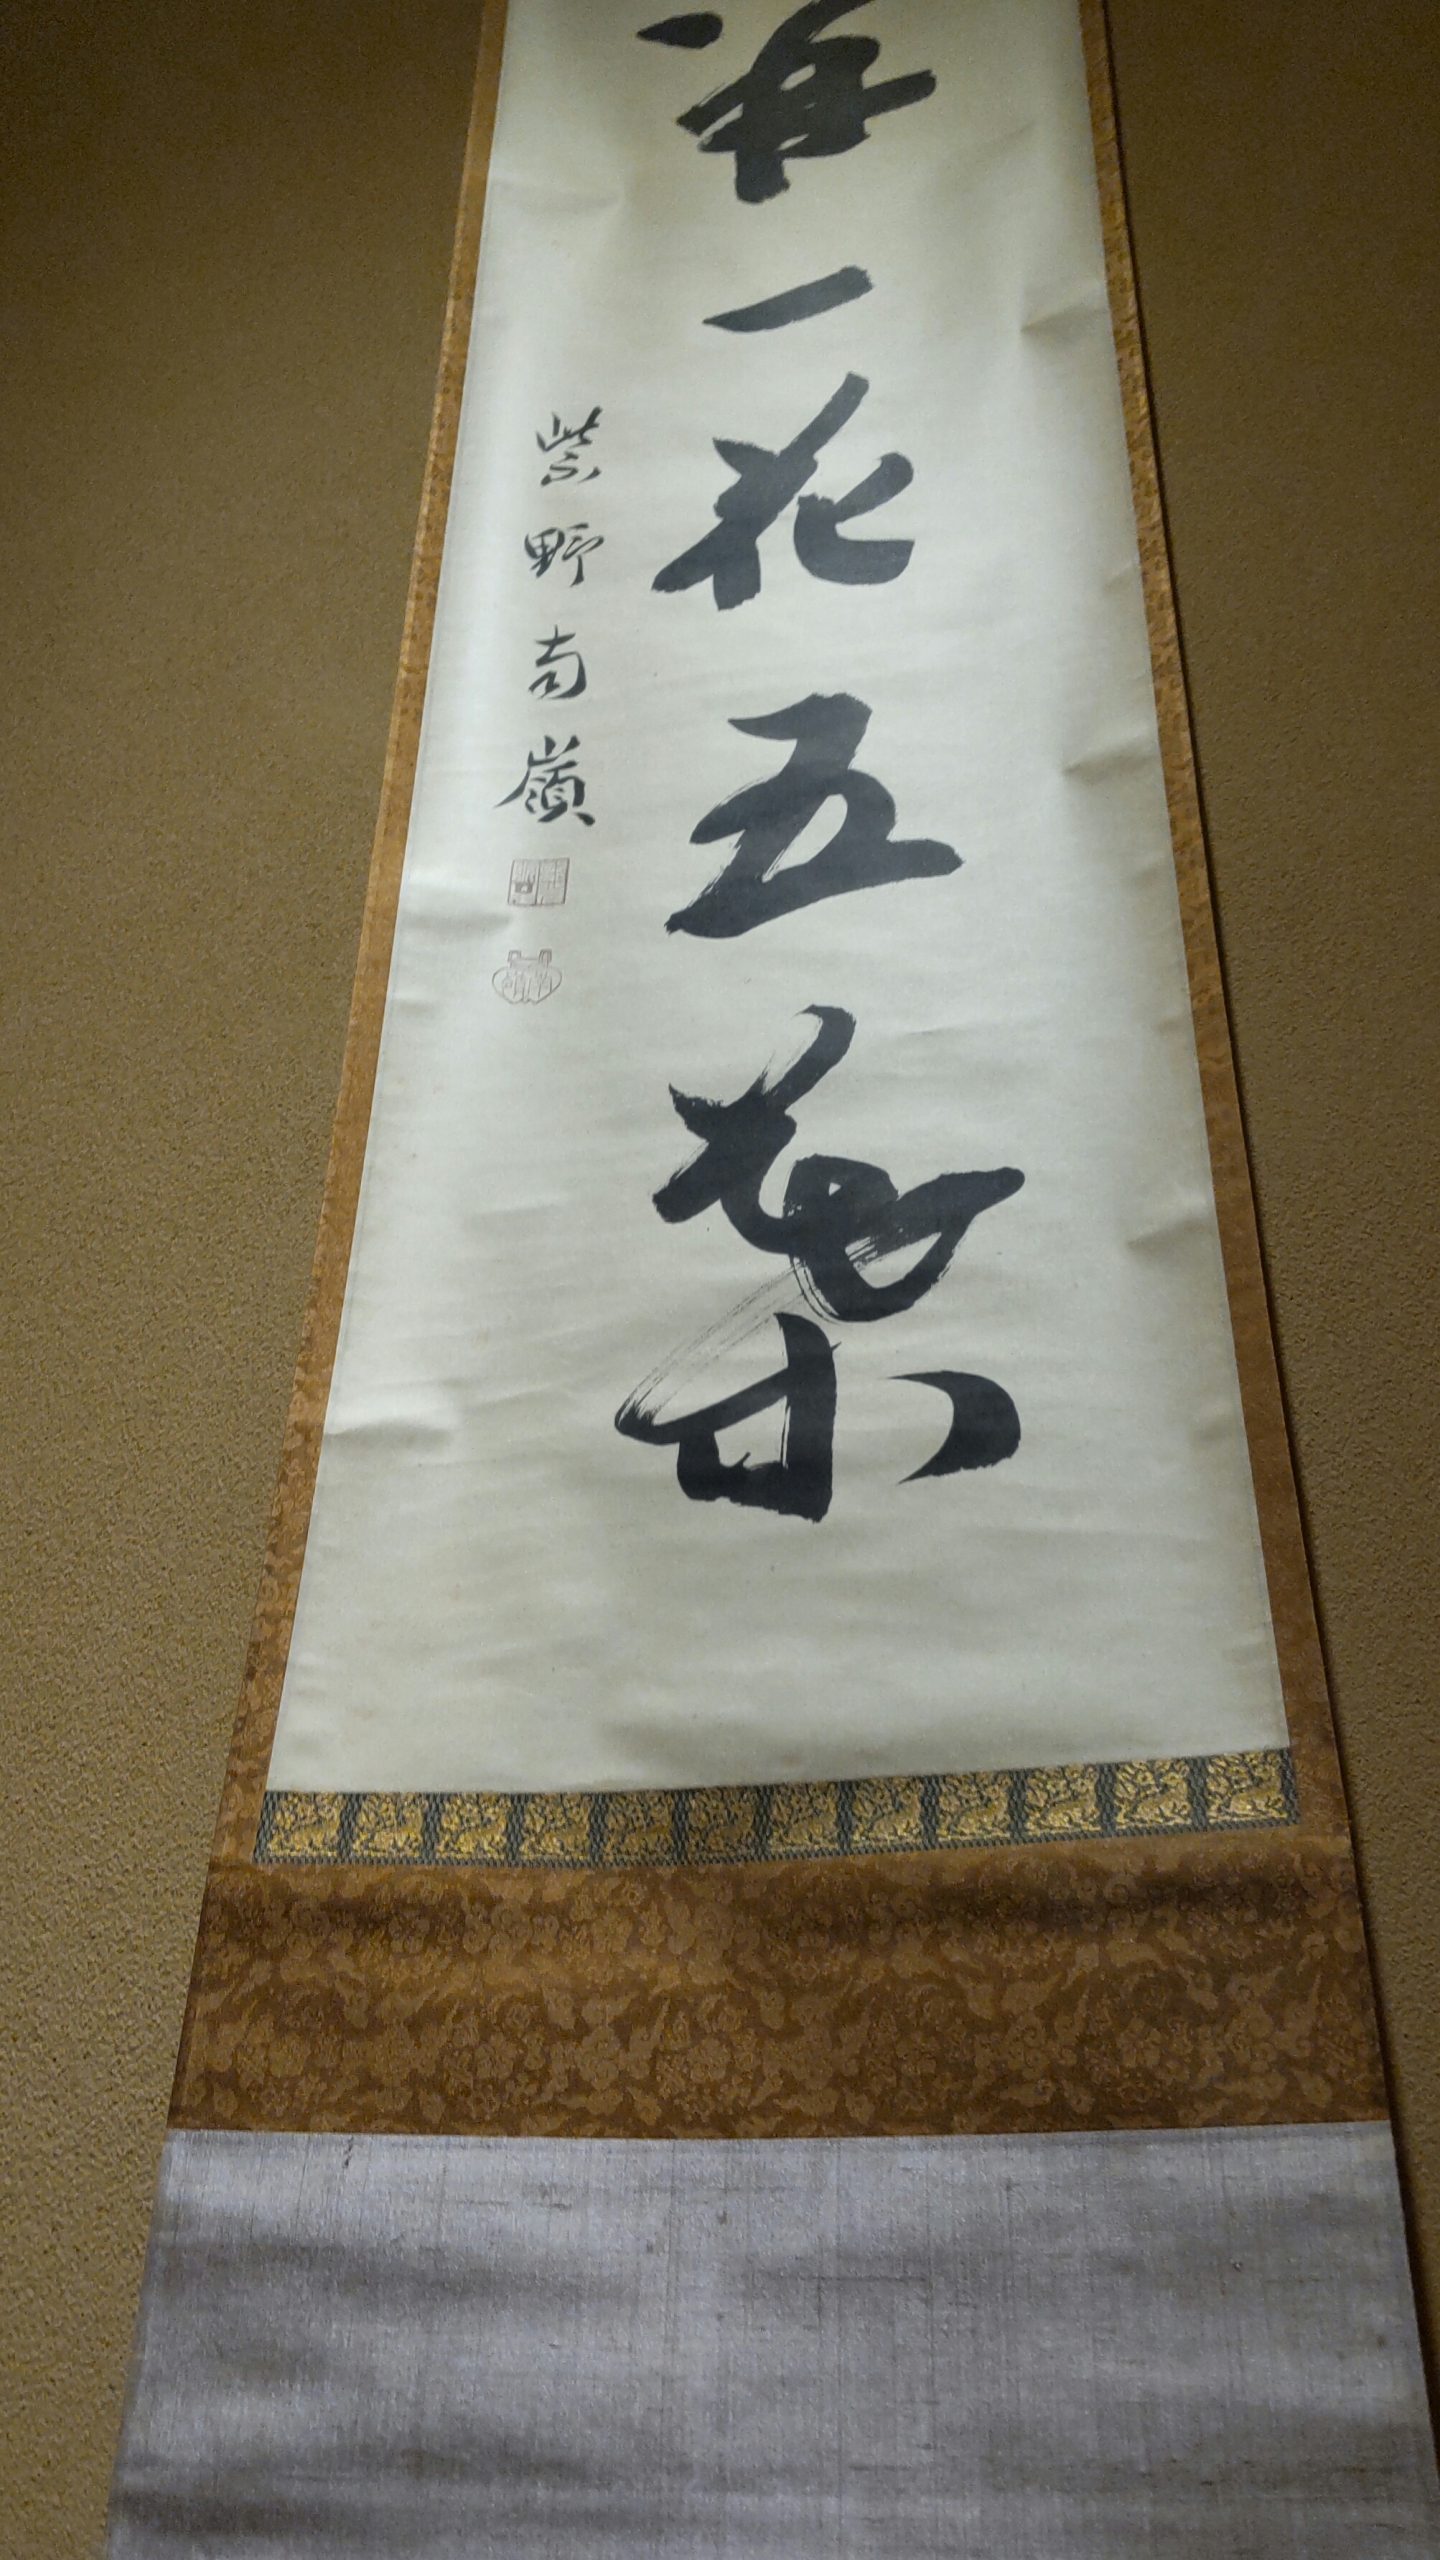 一花五葉
紫野南嶺